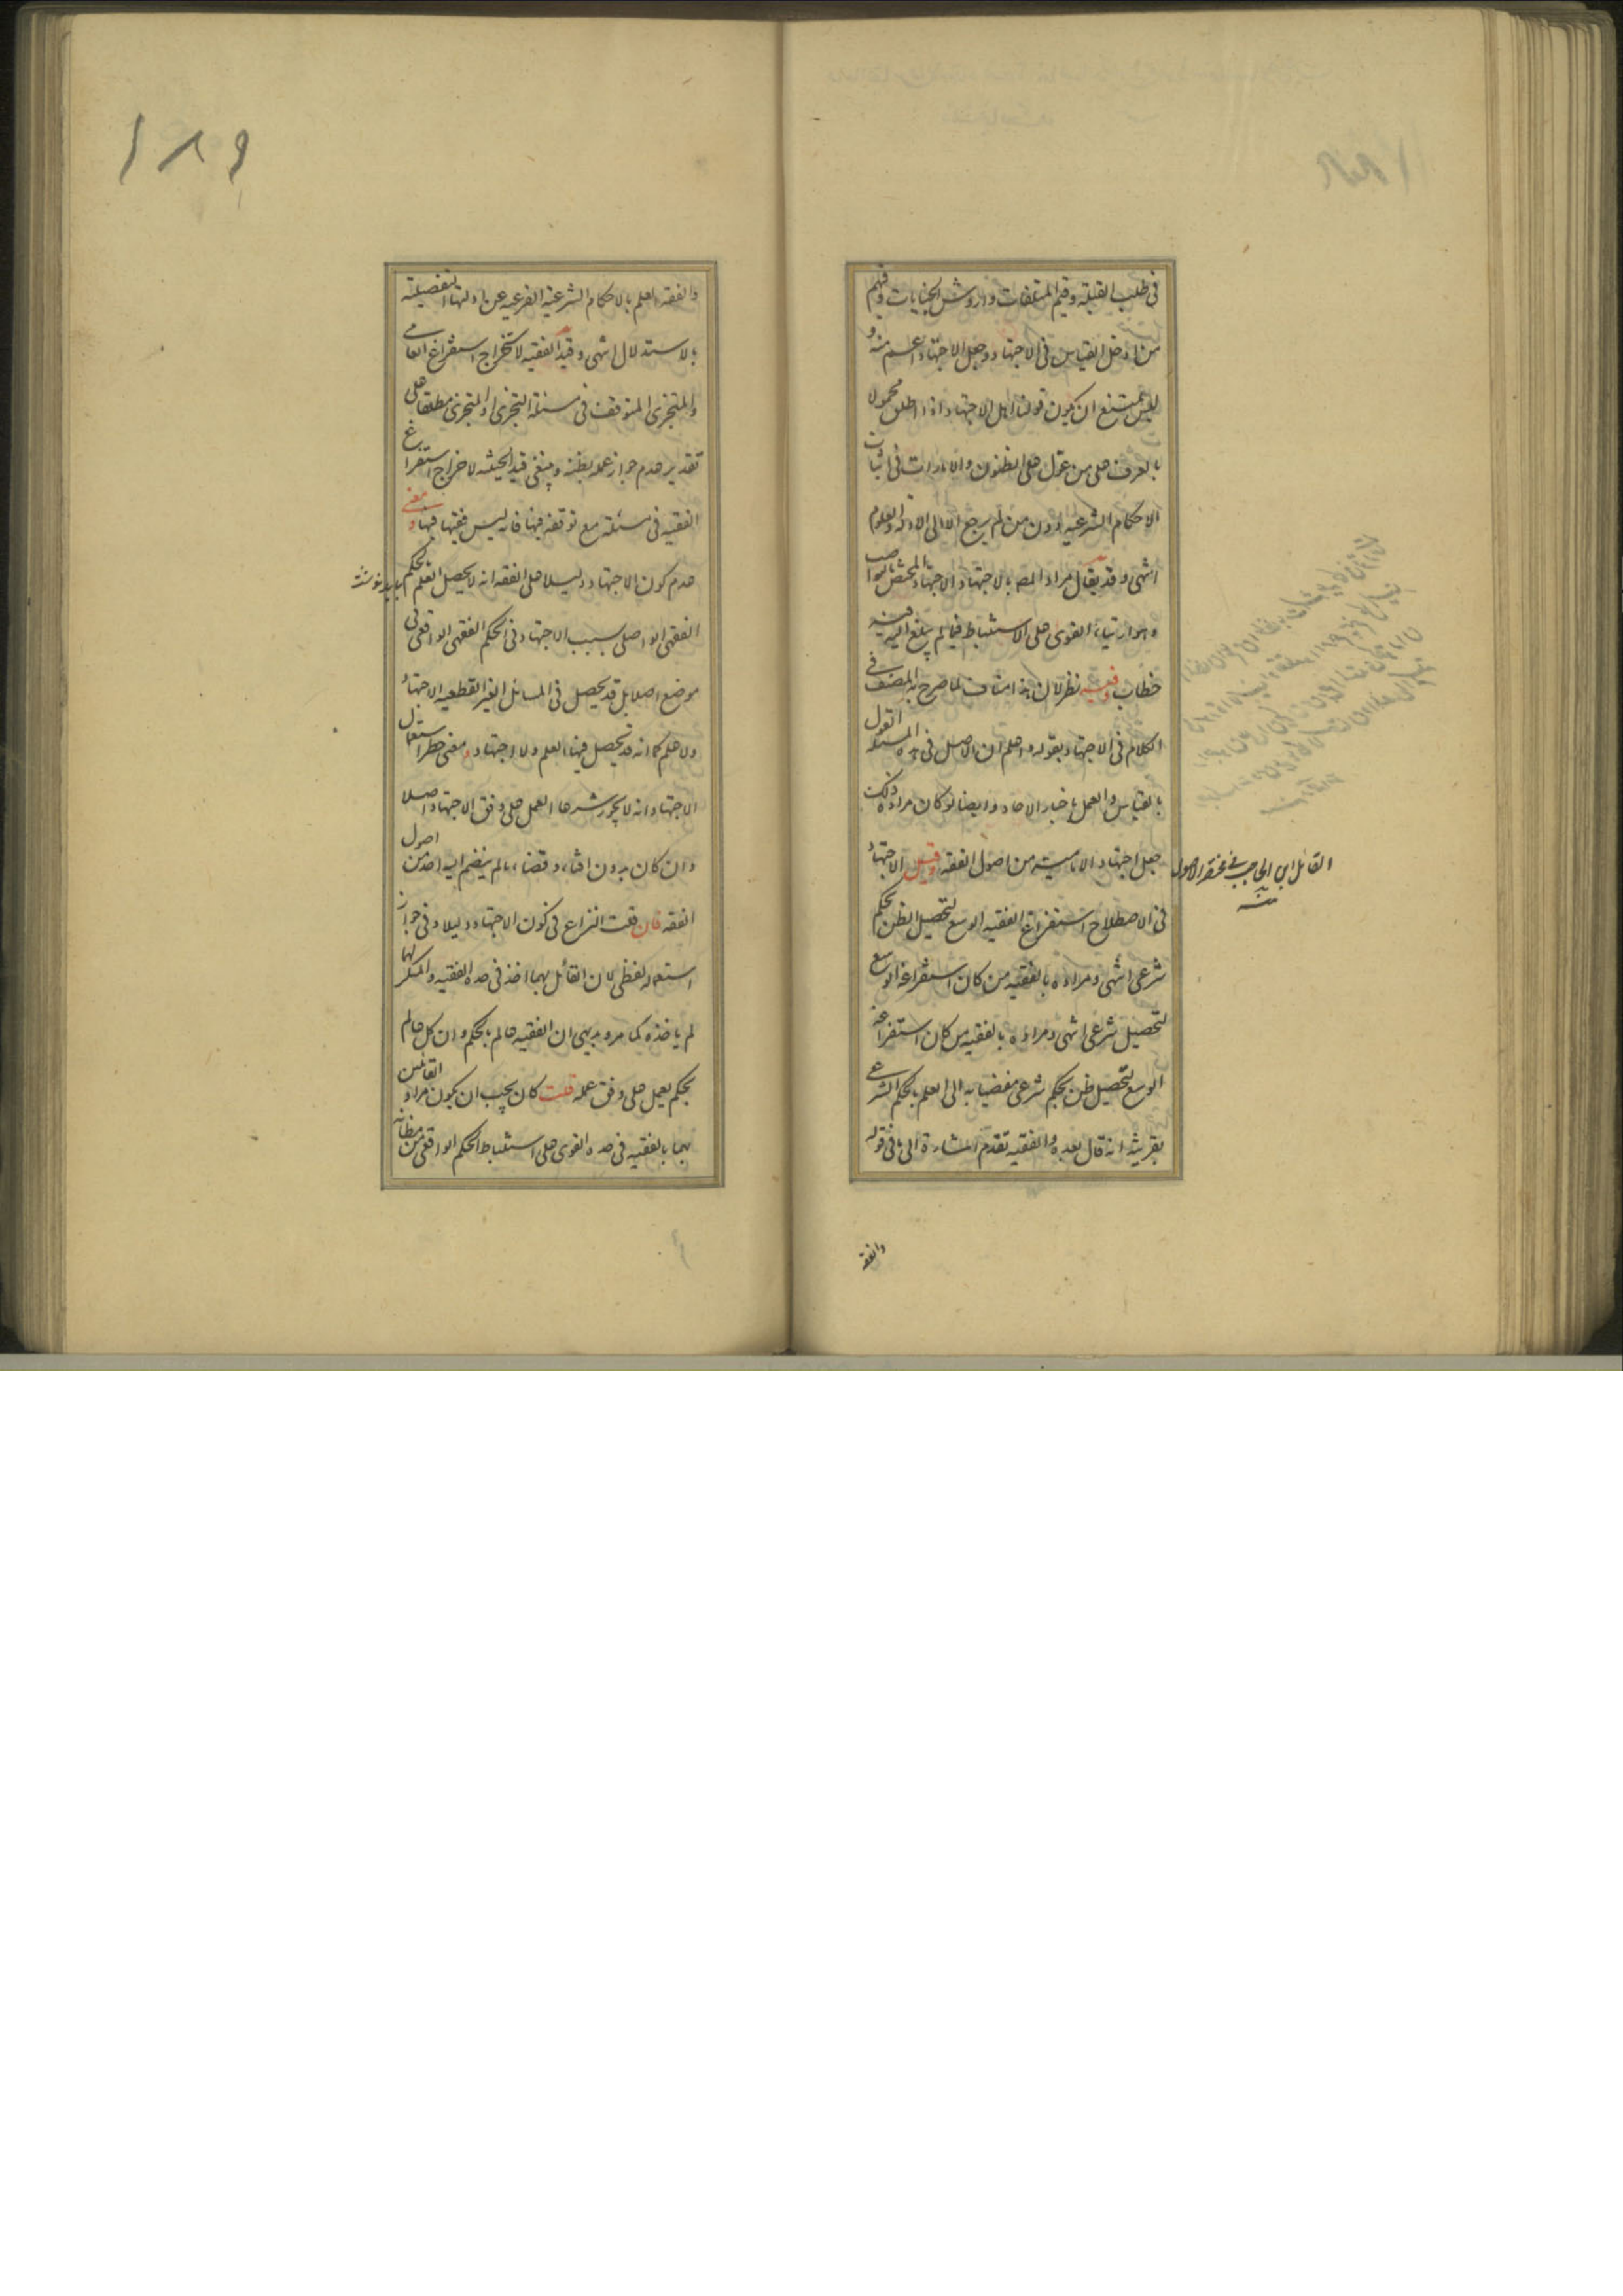 في طلب القبلة وقيم المتلفات واروش الجنايات وفيهم
من ادخل القياس في الاجتهاد وجعل الاجتهاد اعم منه و
ليس يمتنع ان يكون قولنا اهل الاجتهاد اذا اطلق محمولا
بالعرف على من عول على الظنون والامارات في اثبات
الاحكام الشرعية دون من لم يرجع الا الى الادلة والعلوم
انتهى وقد يقال مراد المص بالاجتهاد الاجتهاد المختص بالنواصب
وهو ارتياء القوى على الاستنباط فيما لم يبلغ اليه فيه
خطاب وفيه نظر لان هذا مناف لما صرح به المصنف في
الكلام في الاجتهاد بقوله واعلم ان الاصل في هذه المسئلة القول
بالقياس والعمل باخبار الآحاد وايضا لو كان مراده ذلك
جعل اجتهاد الامامية من اصول الفقه وقيل الاجتهاد
في الاصطلاح استفراغ الفقيه الوسع لتحصيل الظن بحكم
شرعي انتهى ومراده بالفقيه من كان استفراغه الوسع
لتحصيل شرعي انتهى ومراده بالفقيه من كان استفراغه
الوسع لتحصيل ظن بحكم شرعي مفضيا به الى العلم بالحكم الشرعي
بقرينة انه قال بعده والفقيه تقدم اشارة الى ما في قوله
القائل ابن الحاجب في مختصر الاصول
منه
والفقه
١٨٩
والفقه العلم بالاحكام الشرعية الفرعية عن ادلتها التفصيلية
بالاستدلال انتهى وقيد الفقيه لاخراج استفراغ العامي
والمتجزي المتوقف في مسئلة التجزي او المتجزي مطلقا على
تقدير عدم جواز عمله بظنه وينبغي قيد الحيثية لاخراج استفراغ
الفقيه في مسئلة مع توقفه فيها فانه ليس فقيها فيها ومعنى
عدم كون الاجتهاد دليلا على الفقه انه لا يحصل العلم بحكم
بايد نوشت
الفقهي الواصلي بسبب الاجتهاد في الحكم الفقهي الواقعي في
موضع اصلا بل قد يحصل في المسائل الغير القطعية الاجتهاد
ولا علم كما انه قد يحصل فيها العلم ولا اجتهاد ومعنى حظر استعمال
الاجتهاد انه لا يجوز شرعا العمل على وفق الاجتهاد اصلا
وان كان بدون افتاء وقضاء ما لم ينضم اليه احد من اصول
الفقه فان قلت النزاع في كون الاجتهاد دليلا وفي جواز
استعماله لفظي لان القائل بهما اخذ في حده الفقيه والمنكر لهما
لم ياخذه كما مر وبديهي ان الفقيه عالم بالحكم وان كل عالم
بحكم يعمل على وفق علمه قلت كان يجب ان يكون مراد القائلين
بهما بالفقيه في حده القوى على استنباط الحكم الواقعي من مظانه